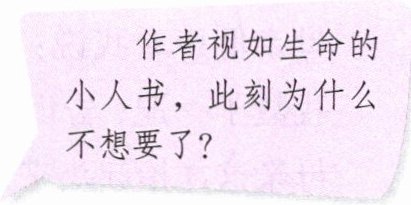 作者视如生命的
小人书，此刻为什么
不想要了？